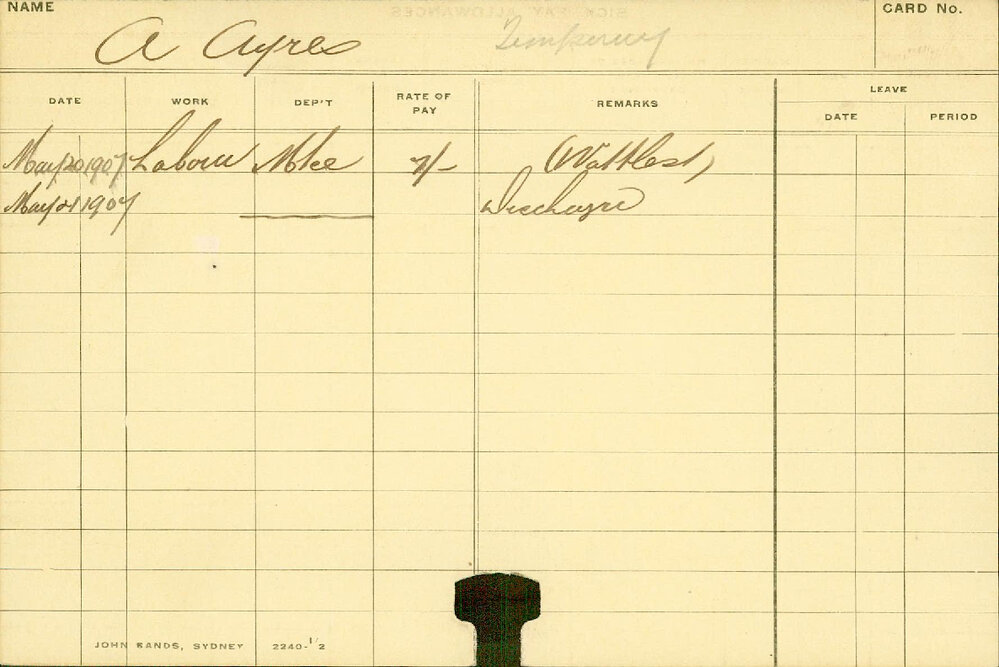 NAME A Ayres Tempory CARD No.
DATE WORK DEP'T RATE OF PAY REMARKS LEAVE
DATE PERIOD
May 20 1907 Labour Mtce 7/- (Wattlest)
May 21 1907 Discharge
JOHN SANDS, SYDNEY 2240-1/2